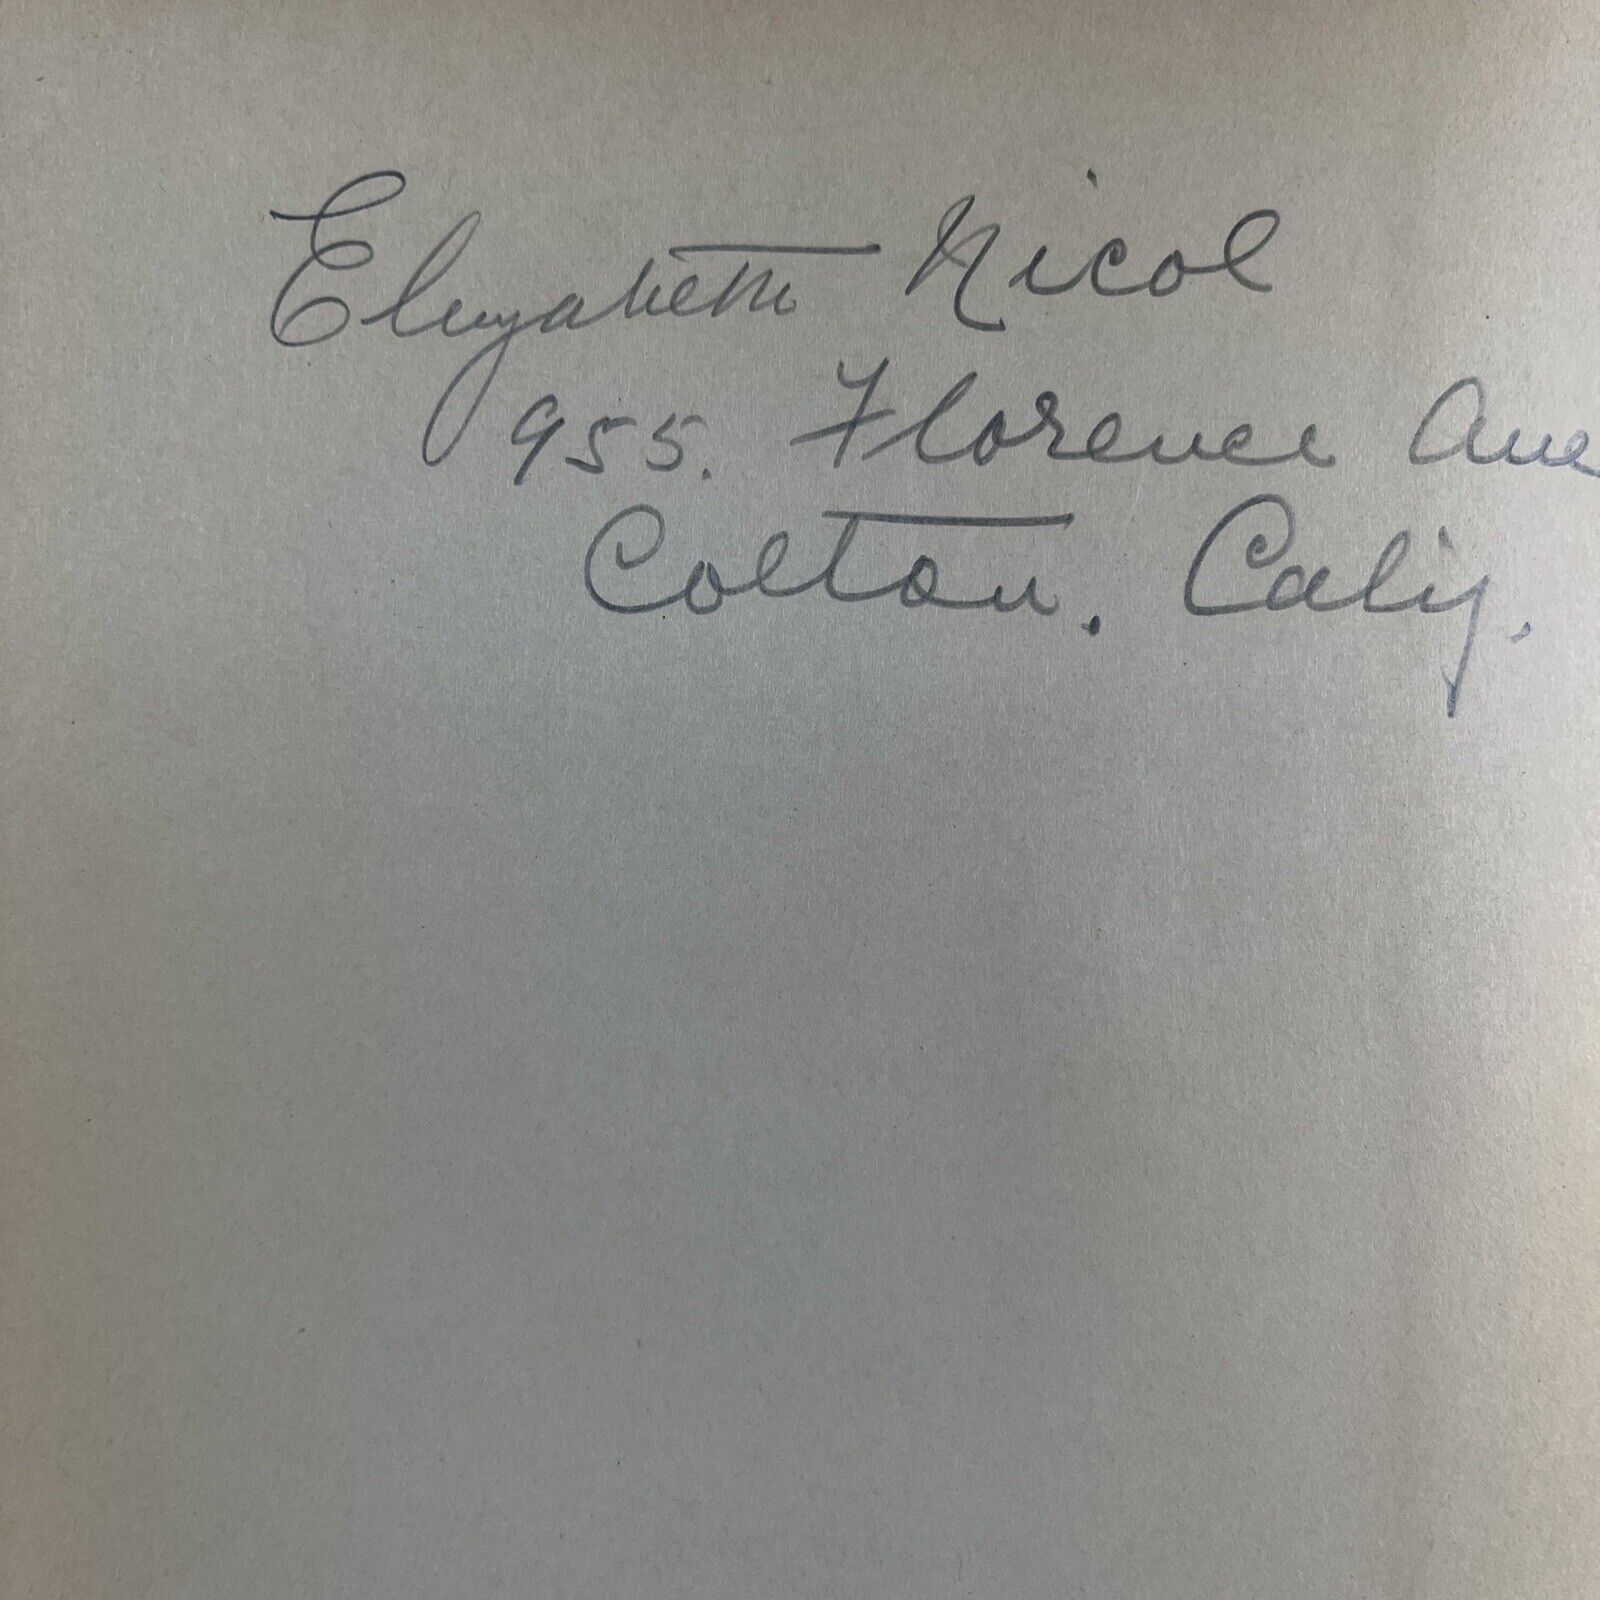 Elizabeth Nicol
955. Florence Ave
Colton. Calif.